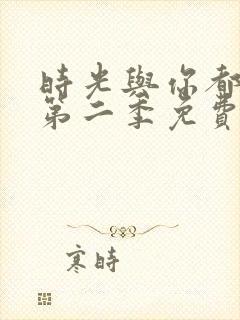 時光與你都
第二季免費
寒時